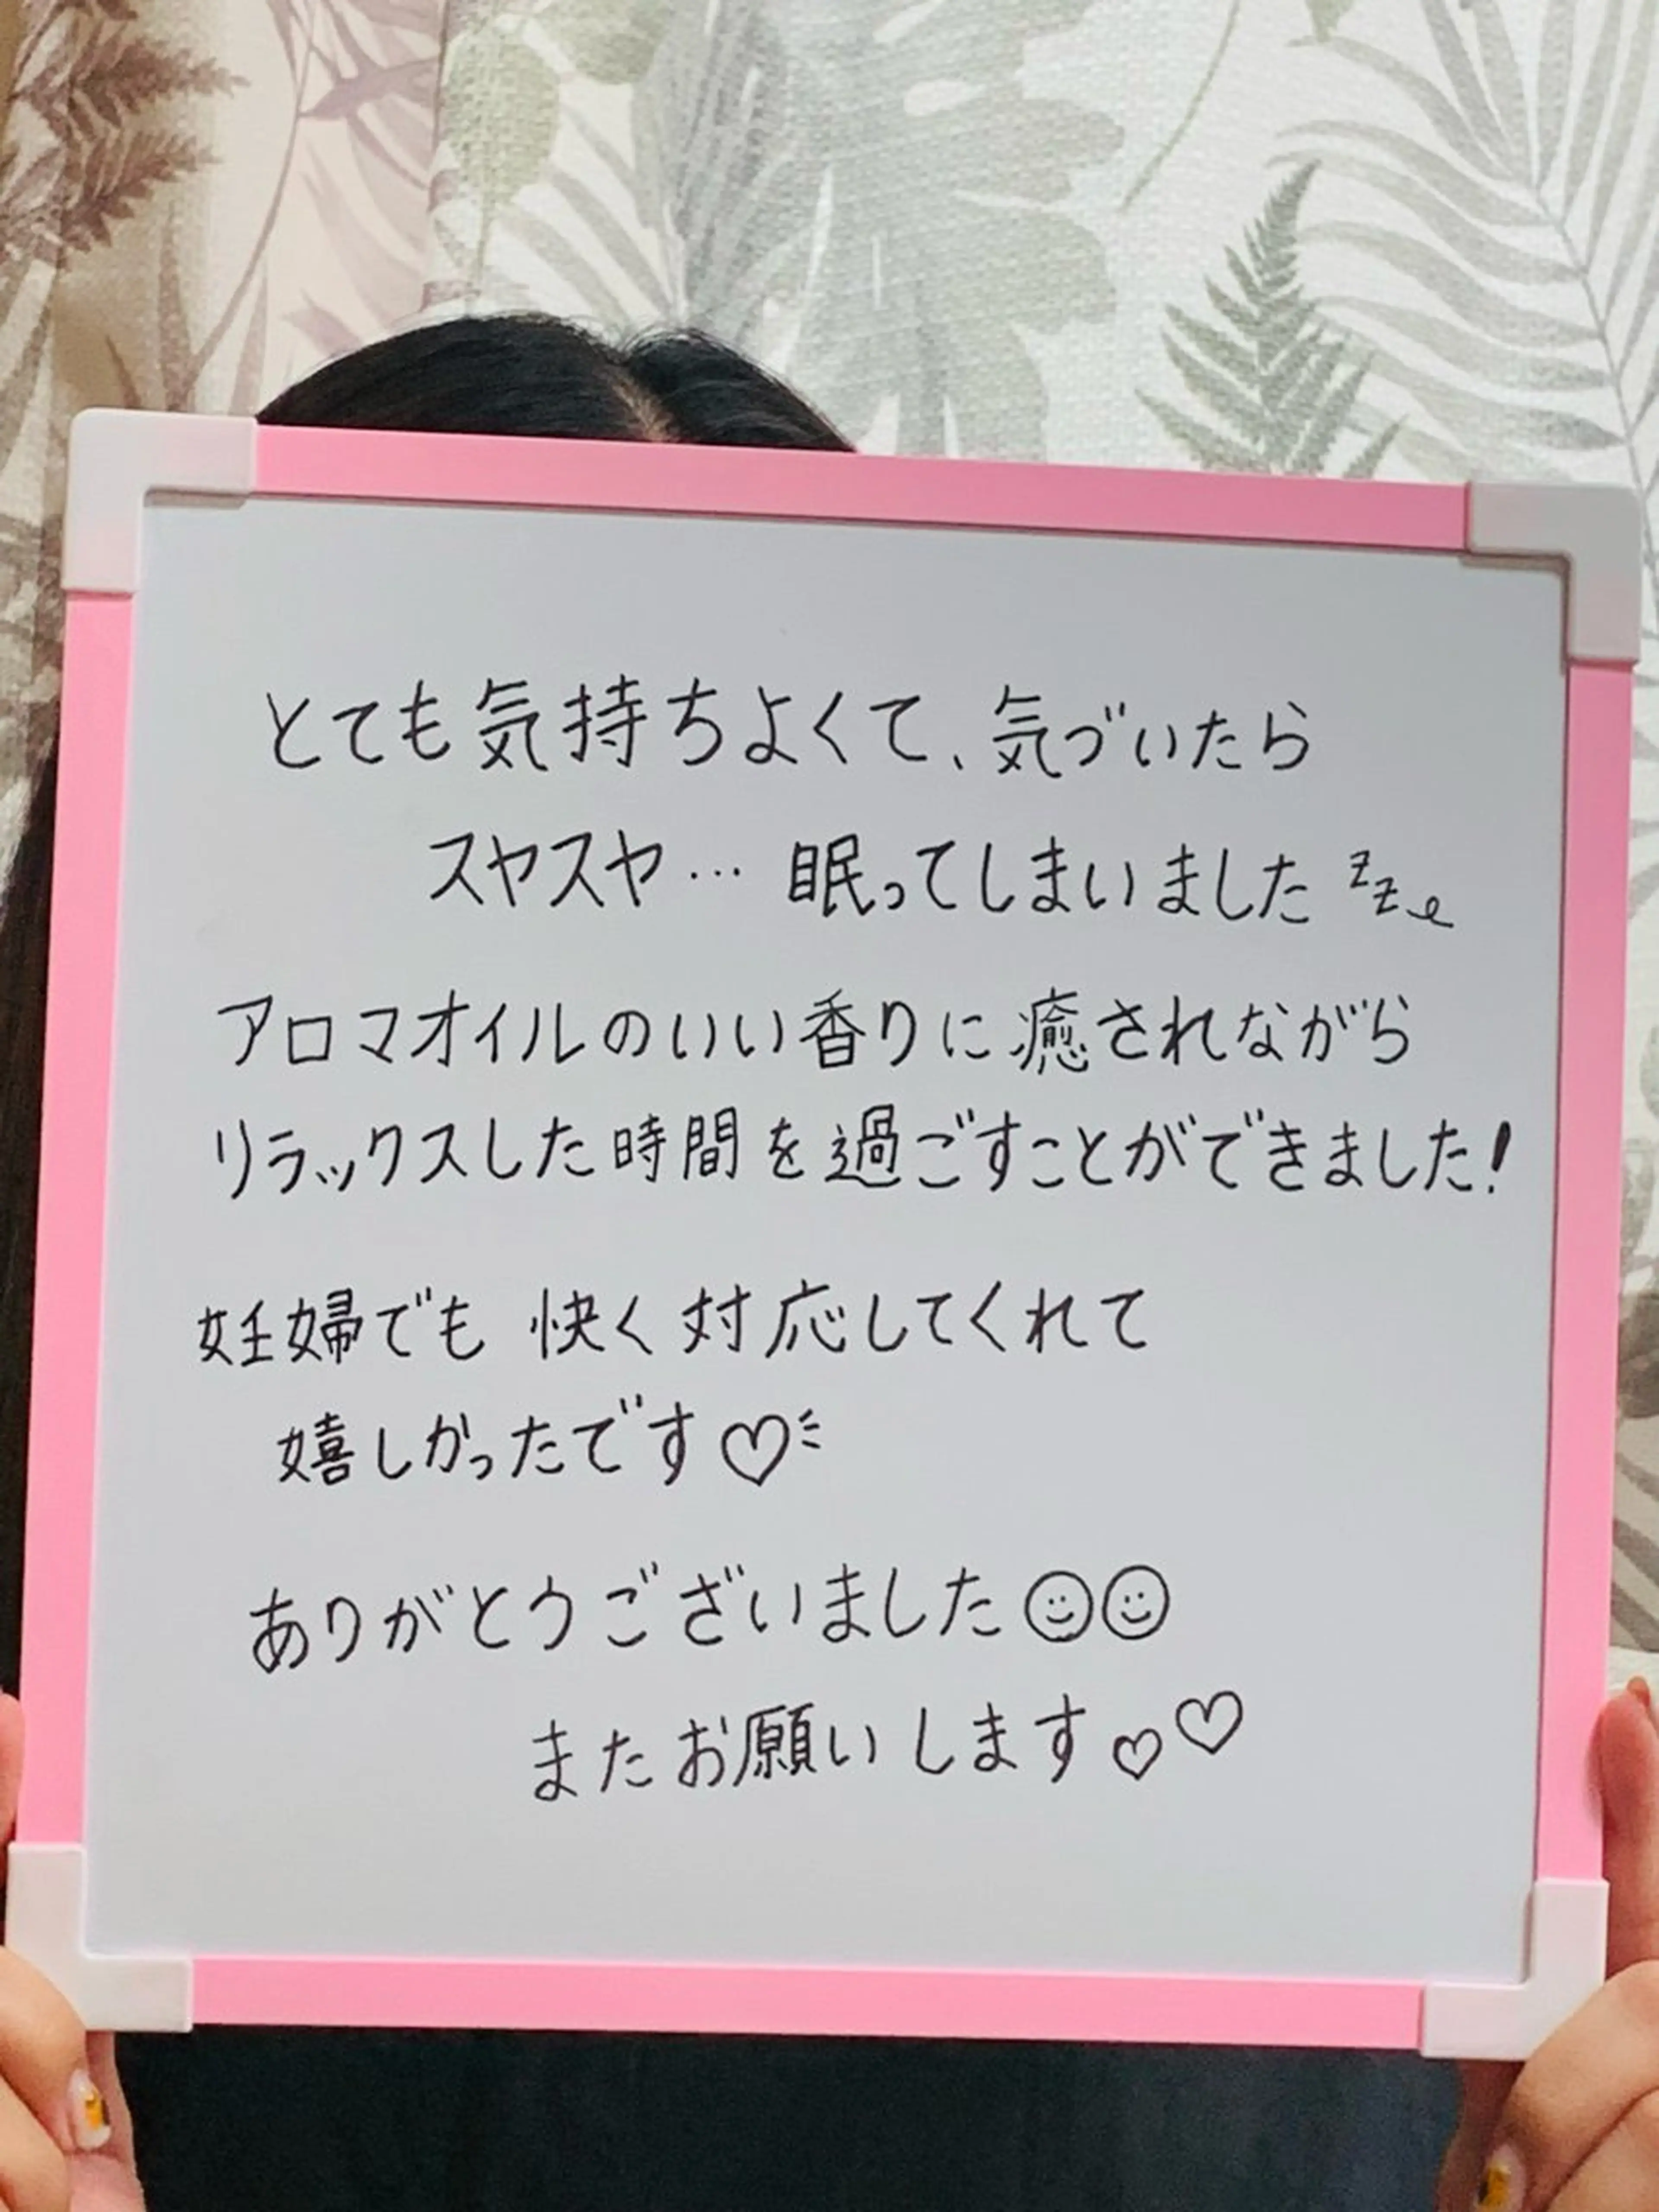 とても気持ちよくて、気づいたら
スヤスヤ… 眠ってしまいました zz
アロマオイルのいい香りに癒されながら
リラックスした時間を過ごすことができました!
妊婦でも 快く対応してくれて
嬉しかったです♡
ありがとうございました☺☺
またお願いします♡♡